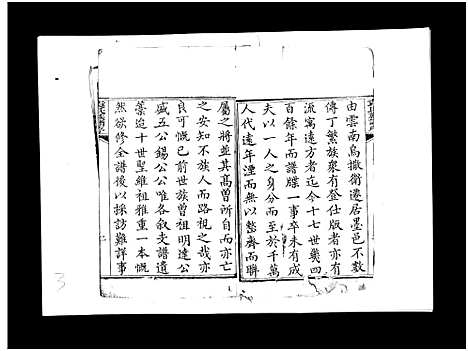 由雲南烏撒衛遷居墨邑不數
傳丁繁族衆有登仕版者亦有
流寓遠方者迄今十七世幾四
百餘年而譜牒一事卒未有成
夫以一人之身分而至於千萬
人代遠年湮而無以整齊而聯
屬之將並其高曾所自而亦亡
之安知不族人而路視之哉亦
良可慨已前世族曾祖明達公
盛五公錫公公唯各敘支譜遺
藁迨十世聖維祖雅重一本慨
然欲修全譜後以採訪難詳事
3